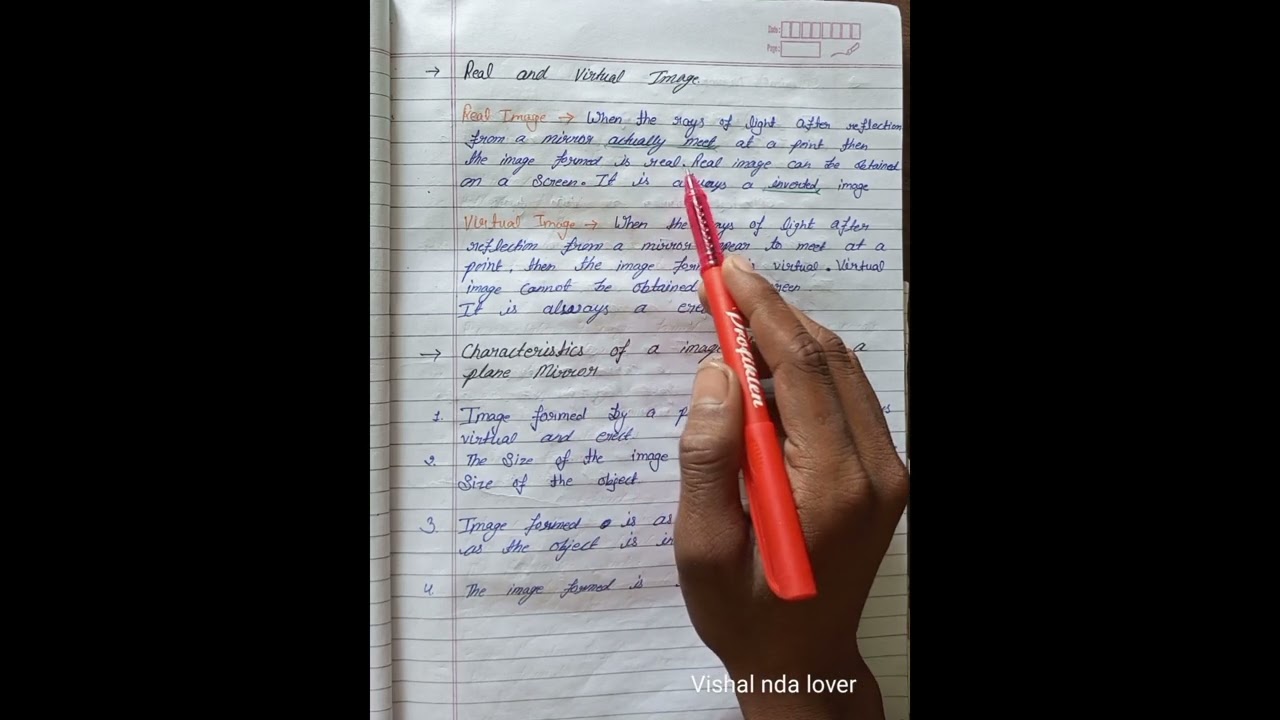 Date:
Page:
→ Real and Virtual Image
Real Image → When the rays of light after reflection
from a mirror actually meet at a point then
the image formed is real. Real image can be obtained
on a screen. It is always a inverted image
Virtual Image → When the rays of light after
reflection from a mirror appear to meet at a
point, then the image is virtual. Virtual
image cannot be obtained
It is always a
→ Characteristics of a image a
plane Mirror
1. Image formed by a
virtual and erect.
2. The Size of the image
Size of the object.
3. Image formed is as
as the object is in
4. The image formed is
Vishal nda lover